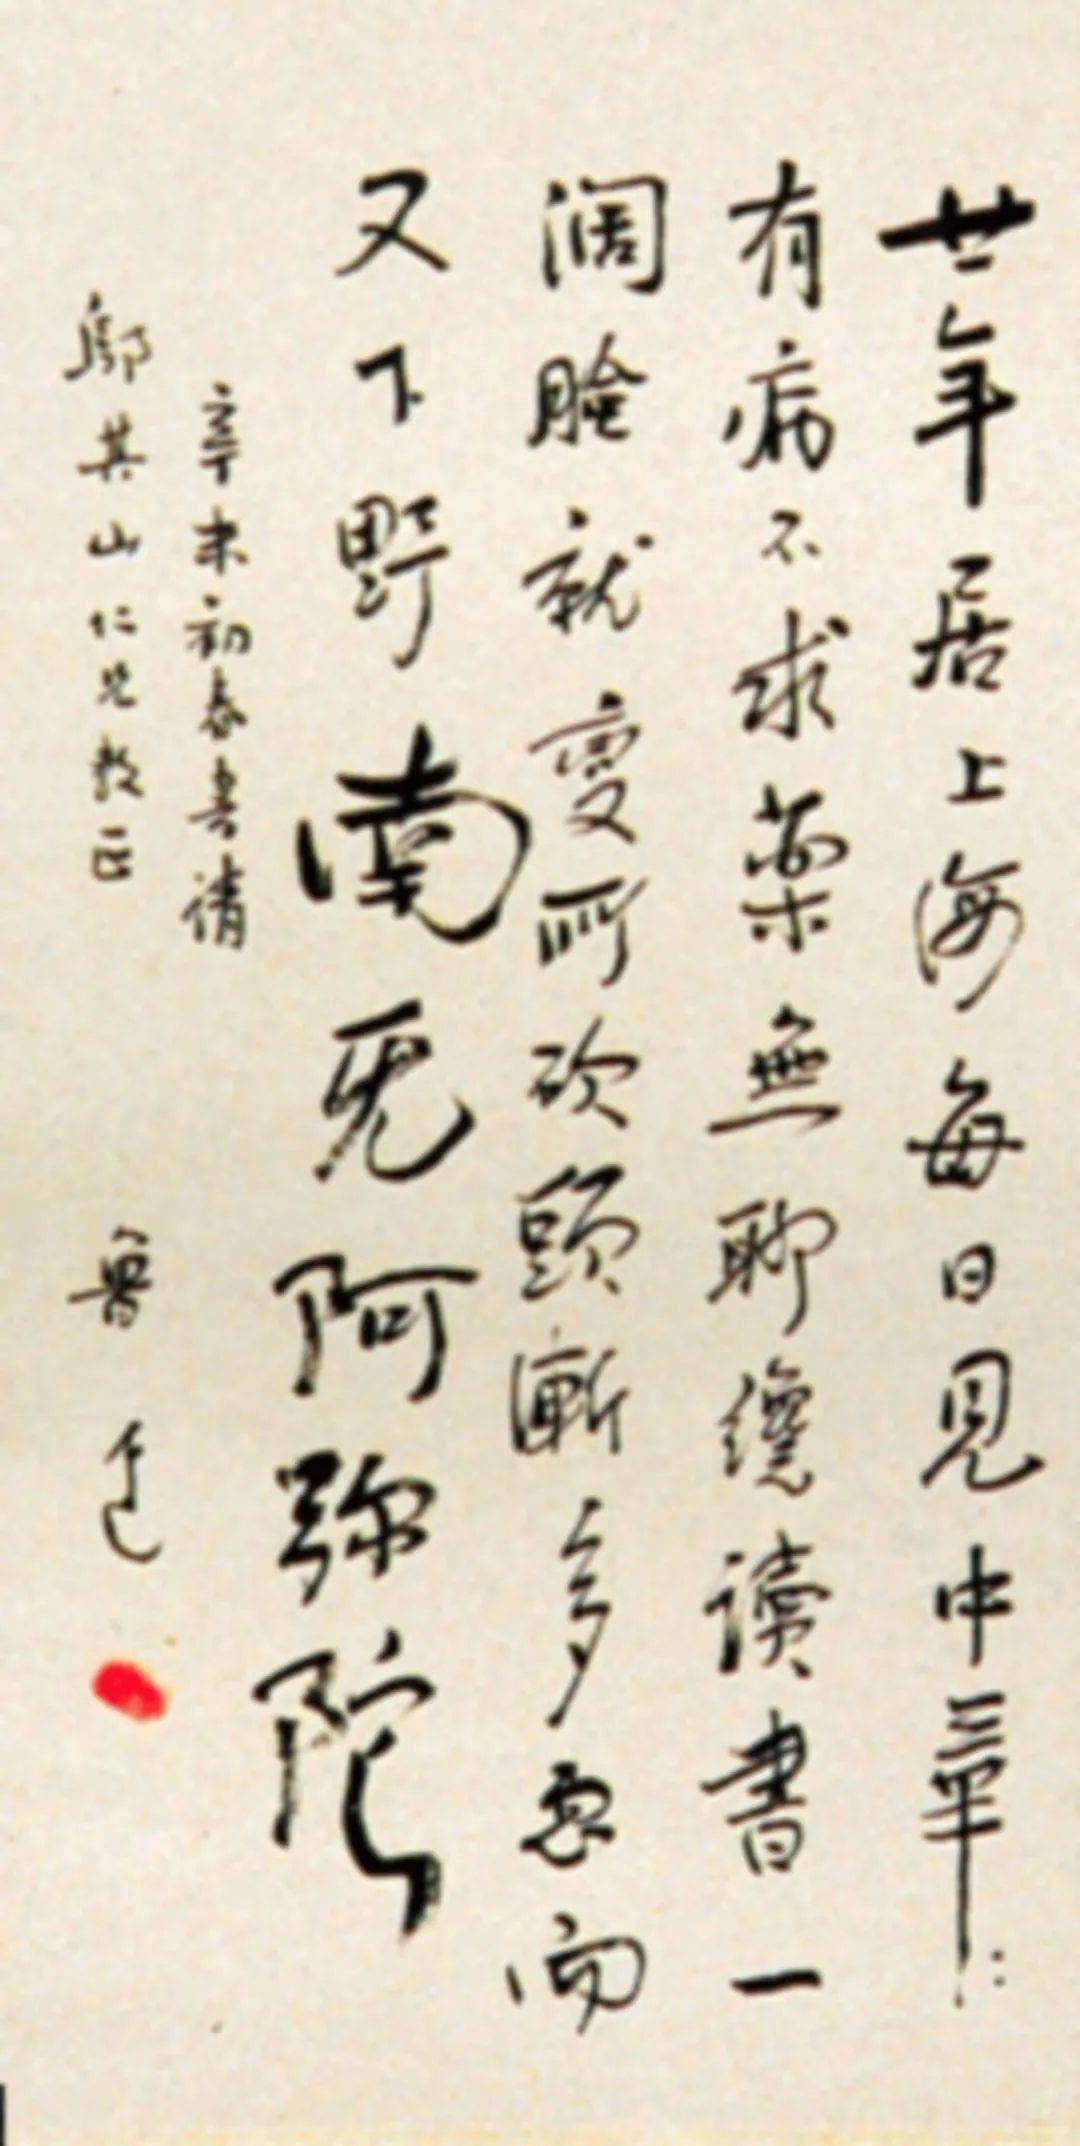 廿年居上海每日見中華
有病不求藥無聊纔讀書一
闊臉就變所砍頭漸多忽而
又下野南无阿弥陀
辛未初春書請
鄔其山仁兄教正
魯迅